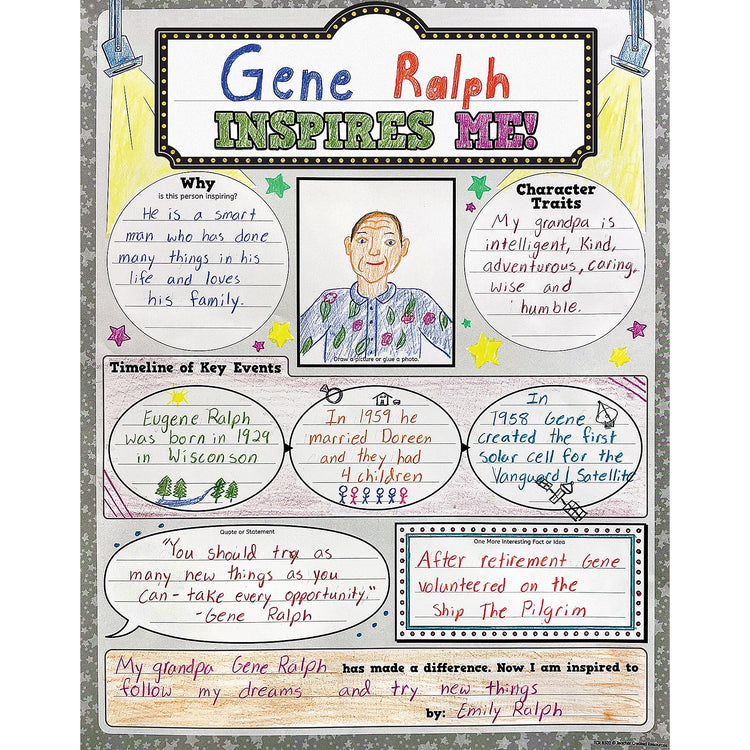 Gene Ralph
INSPIRES ME!
Why
is this person inspiring?
He is a smart
man who has done
many things in his
life and loves
his family.
Draw a picture or glue a photo.
Character
Traits
My grandpa is
intelligent, Kind,
adventurous, caring,
wise and
humble.
Timeline of Key Events
Eugene Ralph
was born in 1929
in Wisconson
In 1959 he
married Doreen
and they had
4 children
In
1958 Gene
created the first
solar cell for the
Vanguard 1 Satellite
Quote or Statement
"You should try as
many new things as you
can - take every opportunity."
- Gene Ralph
One More Interesting Fact or Idea
After retirement Gene
volunteered on the
Ship The Pilgrim
My grandpa Gene Ralph has made a difference. Now I am inspired to
follow my dreams and try new things
by: Emily Ralph
TCR © Teacher Created Resources